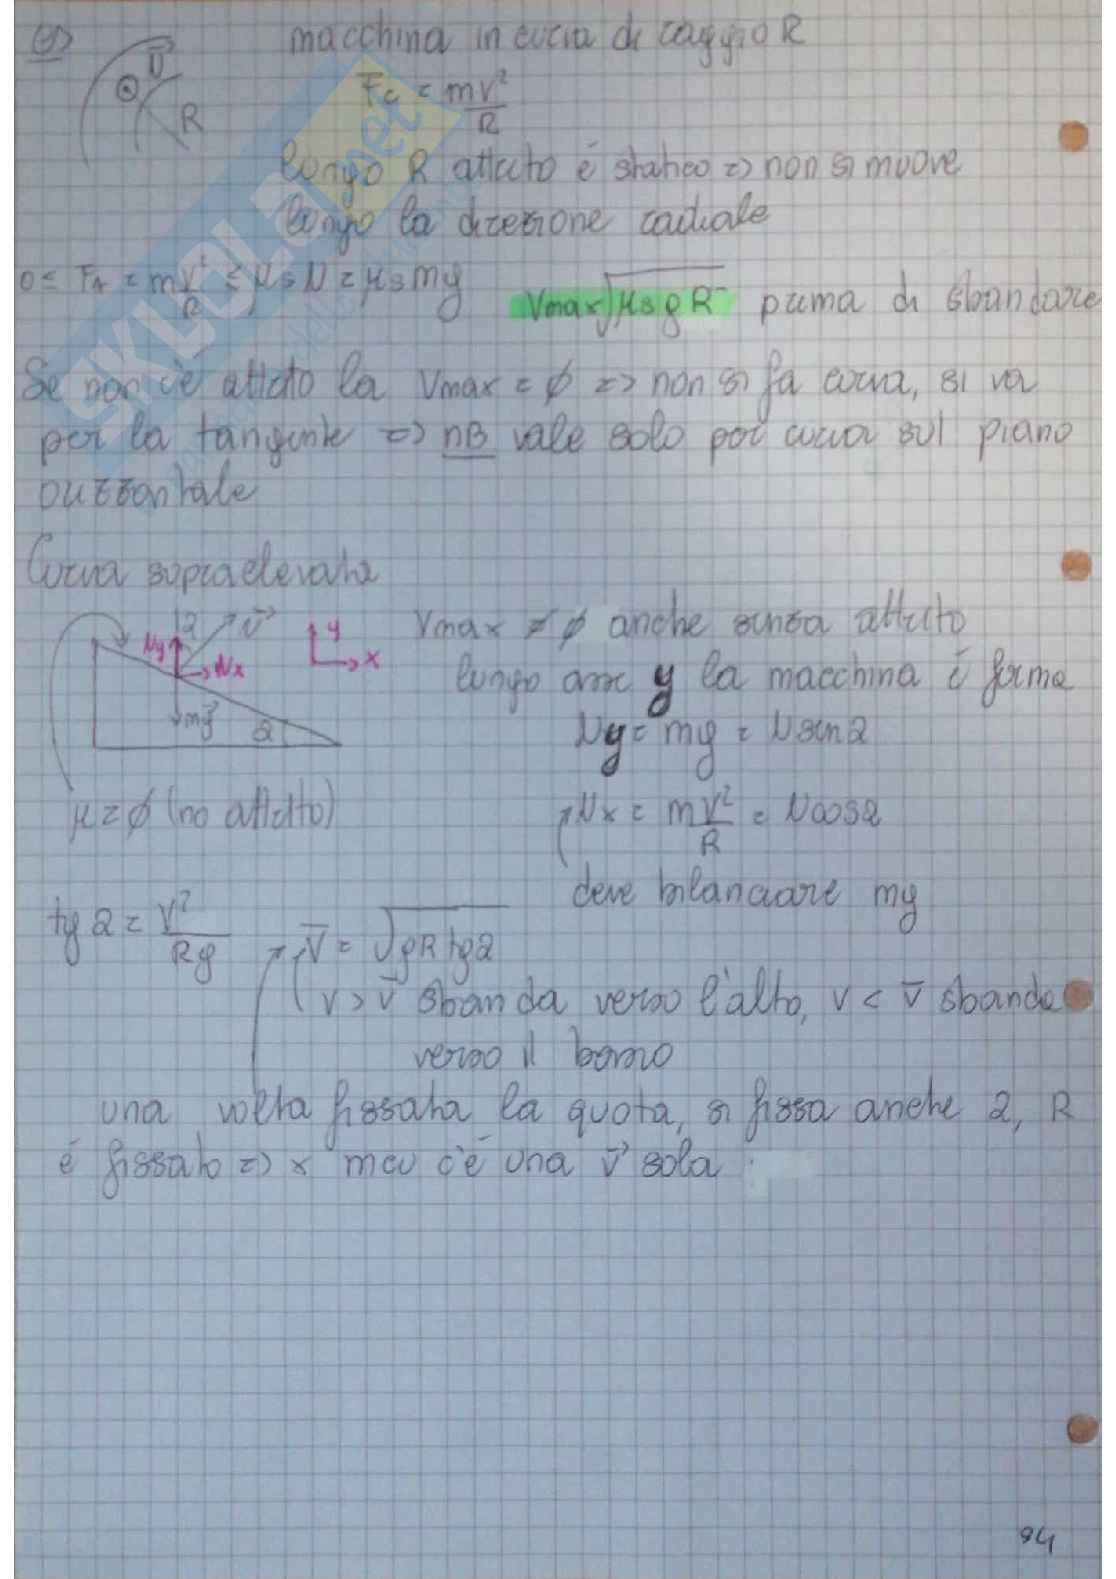 es macchina in curva di raggio R
v
R
Fc = mv²/R
lungo R attrito è statico => non si muove
lungo la direzione radiale
0 ≤ FA = mv²/R ≤ μsN = μsmg Vmax √μsgR prima di sbandare
Se non c'è attrito la Vmax = ϕ => non si fa curva, si va
per la tangente => NB vale solo per curva sul piano
orizzontale
Curva sopraelevata
Vmax ≠ ϕ anche senza attrito
Ny Nx α N y x
lungo asse y la macchina è ferma
mg α
Ny = mg = Nsinα
μ = ϕ (no attrito)
Nx = mv²/R = Ncosα
deve bilanciare mg
tgα = v²/Rg
v̅ = √gRtgα
v > v̅ sbanda verso l'alto, v < v̅ sbanda
verso il basso
una volta fissata la quota, si fissa anche α, R
è fissato => x mcu c'è una v̅ sola
94
SKUOLA.net